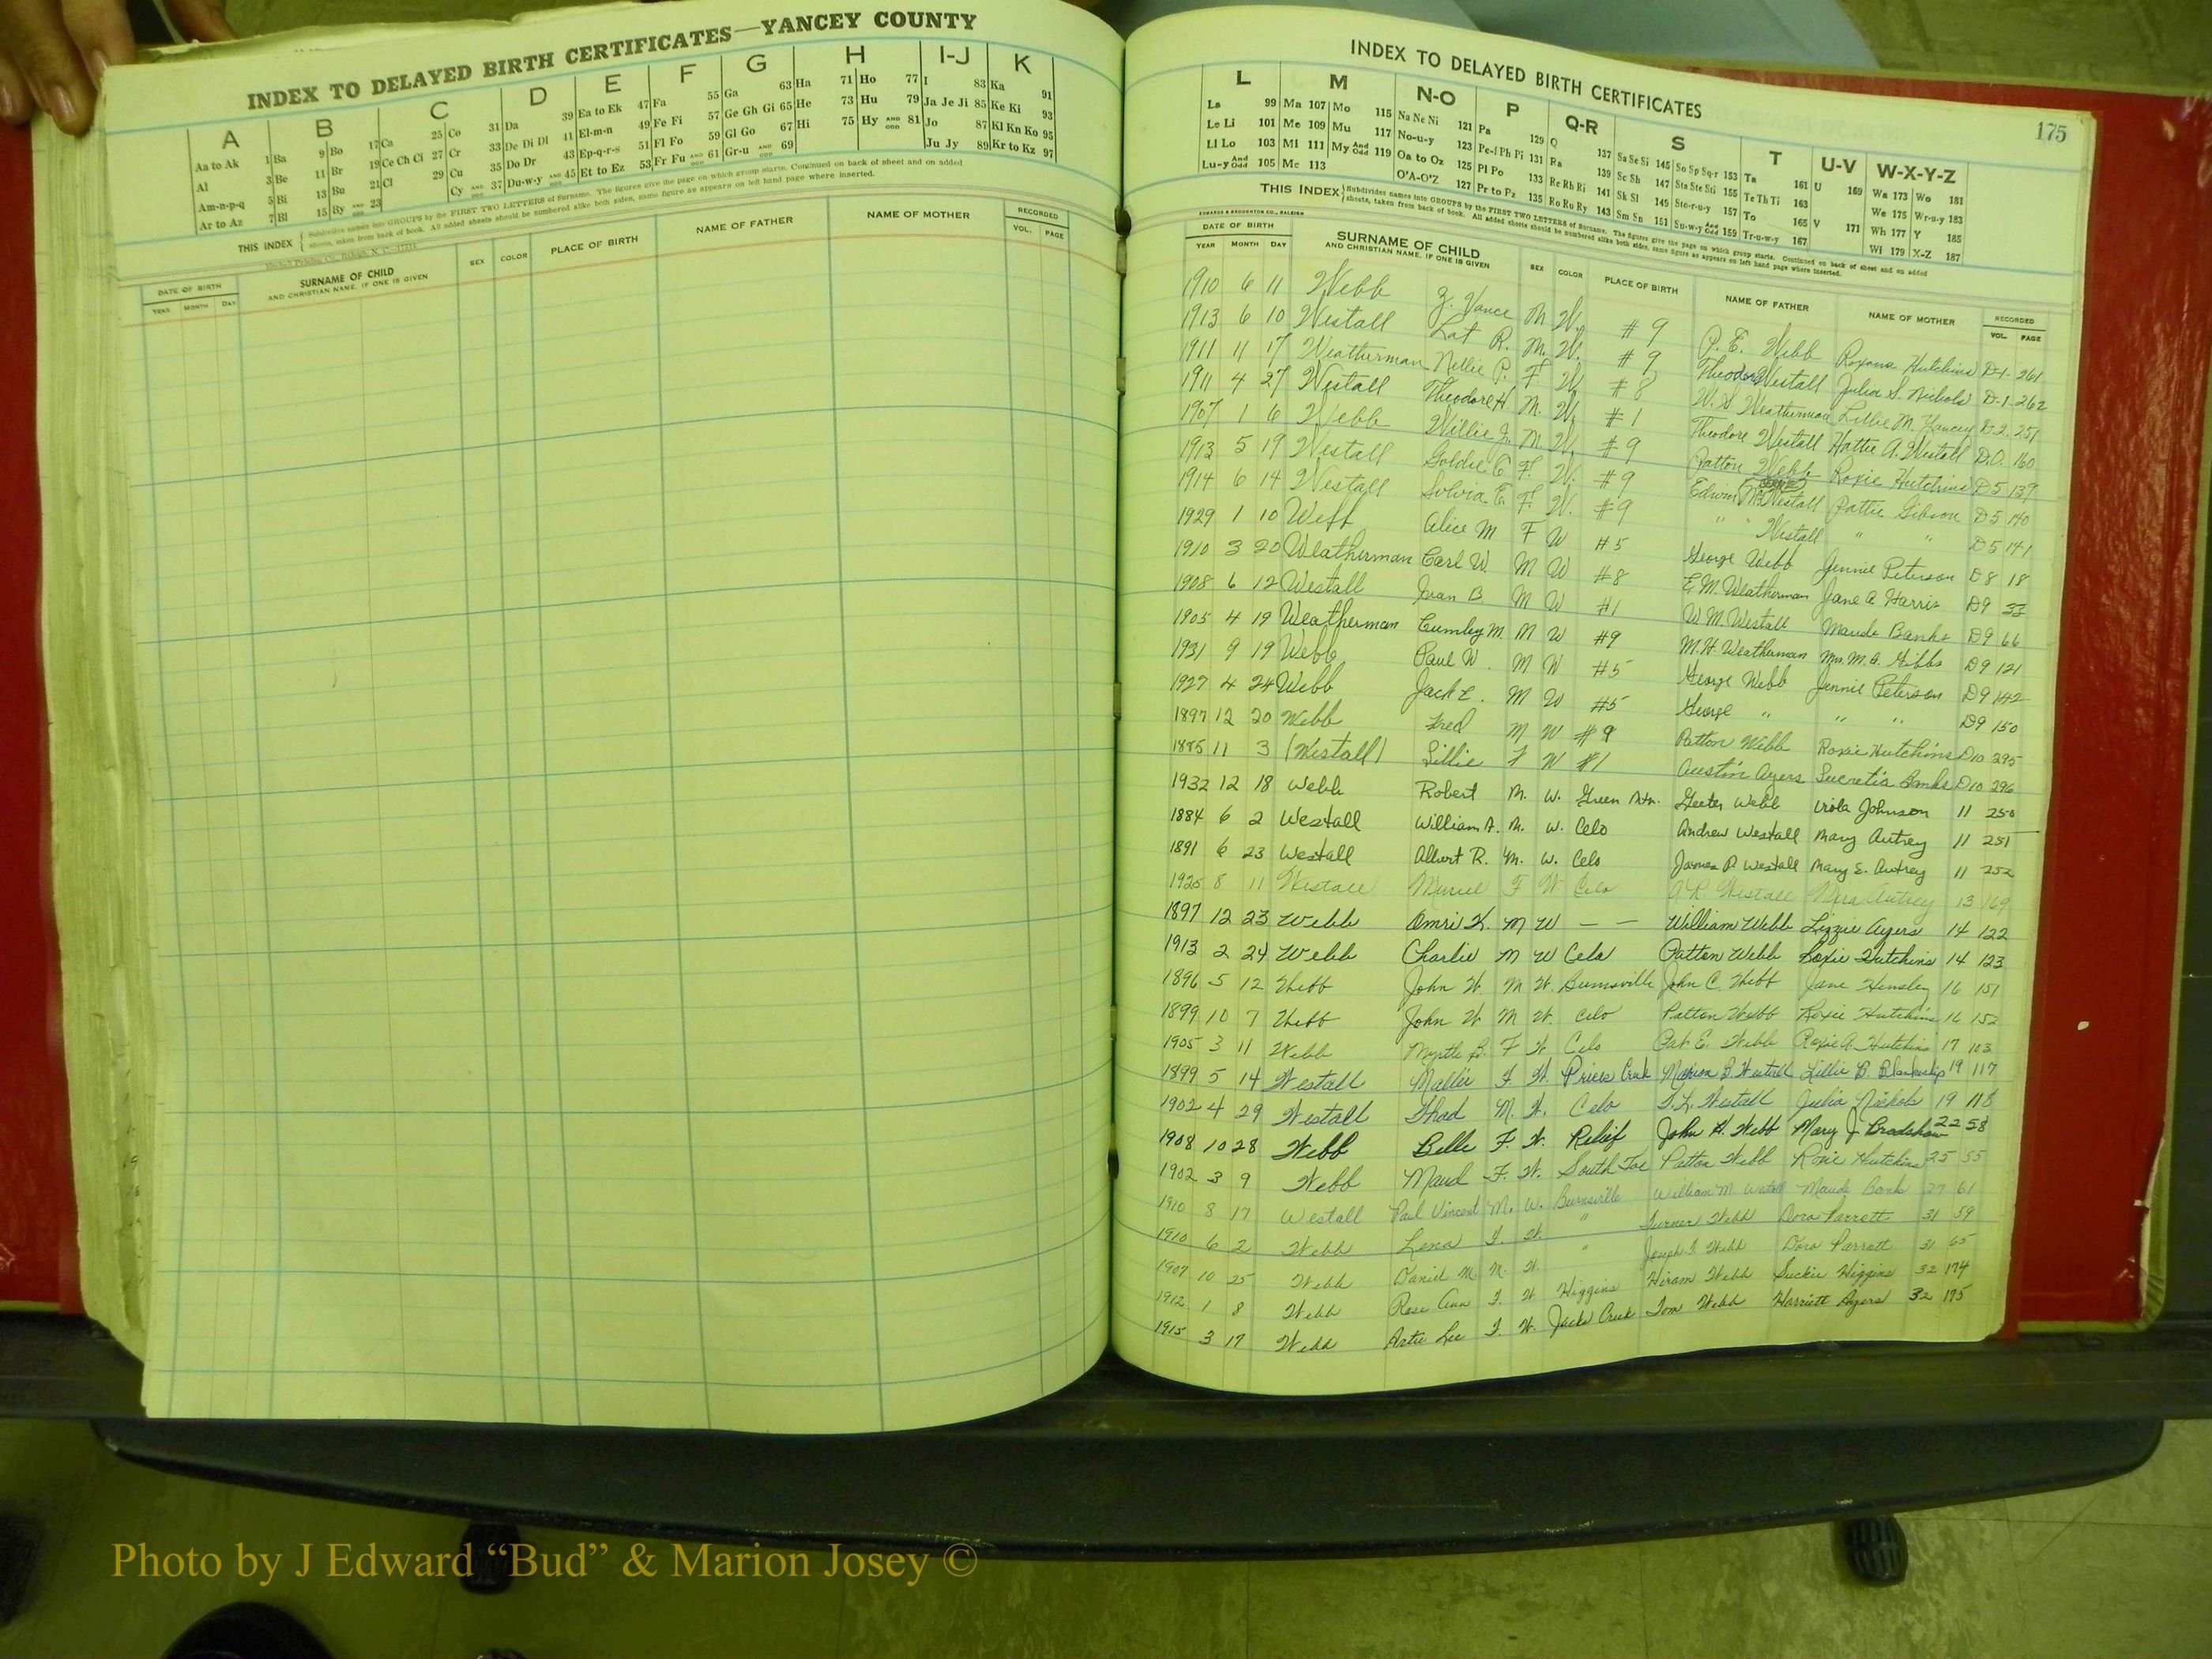 INDEX TO DELAYED BIRTH CERTIFICATES—YANCEY COUNTY
A B C D E F G H I-J K
Aa to Ak 1 Ba 9 Bo 17 Ca 25 Co 31 Da 39 Ea to Ek 47 Fa 55 Ga 63 Ha 71 Ho 77 I 83 Ka 91
Al 3 Be 11 Br 19 Ce Ch Ci 27 Cr 33 De Di Dl 41 El-m-n 49 Fe Fi 57 Ge Gh Gi 65 He 73 Hu 79 Ja Je Ji 85 Ke Ki 93
Am-n-p-q 5 Bi 13 Bu 21 Cl 29 Cu 35 Do Dr 43 Ep-q-r-s 51 Fl Fo 59 Gl Go 67 Hi 75 Hy AND ODD 81 Jo 87 Kl Kn Ko 95
Ar to Az 7 Bl 15 By AND ODD 23 Cy AND ODD 37 Du-w-y AND ODD 45 Et to Ez 53 Fr Fu AND ODD 61 Gr-u AND ODD 69 Ju Jy 89 Kr to Kz 97
THIS INDEX { Subdivides names into GROUPS by the FIRST TWO LETTERS of Surname. The figures give the page on which group starts. Continued on back of sheet and on added
sheets, taken from back of book. All added sheets should be numbered alike both sides, same figure as appears on left hand page where inserted.
DATE OF BIRTH SURNAME OF CHILD SEX COLOR PLACE OF BIRTH NAME OF FATHER NAME OF MOTHER RECORDED
YEAR MONTH DAY AND CHRISTIAN NAME, IF ONE IS GIVEN VOL. PAGE
INDEX TO DELAYED BIRTH CERTIFICATES
175
L M N-O P Q-R S T U-V W-X-Y-Z
La 99 Ma 107 Mo 115 Na Ne Ni 121 Pa 129 Q 137 Sa Se Si 145 So Sp Sq-r 153 Ta 161 U 169 Wa 173 Wo 181
Le Li 101 Me 109 Mu 117 No-u-y 123 Pe-f Ph Pi 131 Ra 139 Sc Sh 147 Sta Ste Sti 155 Te Th Ti 163 We 175 Wr-u-y 183
Ll Lo 103 Mi 111 My And Odd 119 Oa to Oz 125 Pl Po 133 Re Rh Ri 141 Sk Sl 149 Sto-r-u-y 157 To 165 V 171 Wh 177 Y 185
Lu-y And Odd 105 Mc 113 O'A-O'Z 127 Pr to Pz 135 Ro Ru Ry 143 Sm Sn 151 Su-w-y And Odd 159 Tr-u-w-y 167 Wi 179 X-Z 187
THIS INDEX { Subdivides names into GROUPS by the FIRST TWO LETTERS of Surname. The figures give the page on which group starts. Continued on back of sheet and on added
sheets, taken from back of book. All added sheets should be numbered alike both sides, same figure as appears on left hand page where inserted.
EDWARDS & BROUGHTON CO., RALEIGH
DATE OF BIRTH SURNAME OF CHILD SEX COLOR PLACE OF BIRTH NAME OF FATHER NAME OF MOTHER RECORDED
YEAR MONTH DAY AND CHRISTIAN NAME, IF ONE IS GIVEN VOL. PAGE
1910 6 11 Webb Z. Vance M W. #9 P. E. Webb Roxana Hutchins D-1- 261
1913 6 10 Westall Lat R. M. W. #9 Theodore Westall Julia S. Nichols D-1-262
1911 11 17 Weatherman Nellie P. F. W. #8 W. S. Weatherman Lillie M. D.2. 251
1911 4 27 Westall Theodore H. M. W. #1 Theodore Westall Hattie A. Westall D.O. 160
1907 1 6 Webb Willie Jr. M W. #9 Patton Webb Roxie Hutchins D5 139
1913 5 19 Westall Goldie E. F. W. #9 Edwin Westall Pattie Gibson D5 140
1914 6 14 Westall Sylvia E. F. W. #9 " " Westall " " D5 141
1929 1 10 Webb Alice M F W #5 George Webb Jennie Peterson D8 18
1910 3 20 Weatherman Carl W. M W #8 E. M. Weatherman Jane A Harris D9 33
1908 6 12 Westall Ivan B. M W #1 W. M. Westall Maude Banks D9 66
1905 4 19 Weatherman Cumley M. M W #9 M. H. Weatherman Mrs. M. A. Gibbs D9 121
1931 9 19 Webb Paul W. M W #5 George Webb Jennie Peterson D9 142
1927 4 24 Webb Jack E. M W #5 George " " " D9 150
1897 12 20 Webb Fred M W #9 Patton Webb Roxie Hutchins D10 295
1885 11 3 (Westall) Lillie F W #1 Austin Ayers Lucretia Banks D10 296
1932 12 18 Webb Robert M. W. Green Mtn. Geeter Webb Viola Johnson 11 250
1884 6 2 Westall William A. M. W. Celo Andrew Westall Mary Autrey 11 251
1891 6 23 Westall Albert R. M. W. Celo James P. Westall Mary E. Autrey 11 252
1925 8 11 Westall Muriel F W Celo A. R. Westall Autrey 13 169
1897 12 23 Webb Omri K. M W — — William Webb Lizzie Ayers 14 122
1913 2 24 Webb Charlie M W Celo Patton Webb Roxie Hutchins 14 123
1896 5 12 Webb John W. M W. Burnsville John C. Webb Jane Hensley 16 151
1899 10 7 Webb John W M W. Celo Patton Webb Roxie Hutchins 16 152
1905 3 11 Webb Myrtle B. F W Celo Pat E. Webb Roxie A. Hutchins 17 103
1899 5 14 Westall Mallie F W. Prices Creek Marion B. Westall Lillie B. Blankenship 19 117
1902 4 29 Westall Thad M. W. Celo T. L. Westall Julia Nichols 19 118
1908 10 28 Webb Belle F. W. Relief John H. Webb Mary J Bradshaw 22 58
1902 3 9 Webb Maud F. W. South Toe Patton Webb Roxie Hutchins 25 55
1910 8 17 Westall Paul Vincent M. W. Burnsville William M Westall Maude Banks 27 61
1910 6 2 Webb Lena F. W. " Turner Webb Dora Parrott 31 59
1907 10 25 Webb Daniel M. M. W. " Joseph T. Webb Dora Parrott 31 65
1912 1 8 Webb Rose Ann F. W Higgins Hiram Webb Suckie Higgins 32 174
1915 3 17 Webb Artie Lee F. W. Jacks Creek Tom Webb Harriett Ayers 32 175
Photo by J Edward “Bud” & Marion Josey ©